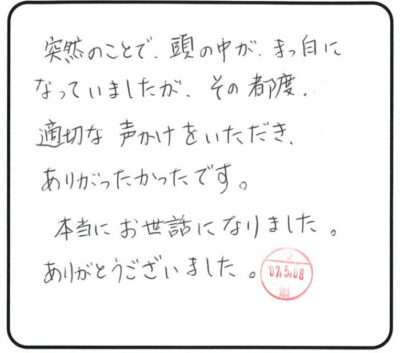 突然のことで、頭の中が、まっ白に
なっていましたが、その都度、
適切な声かけをいただき、
ありがったかったです。
本当にお世話になりました。
ありがとうございました。
'07.5.08